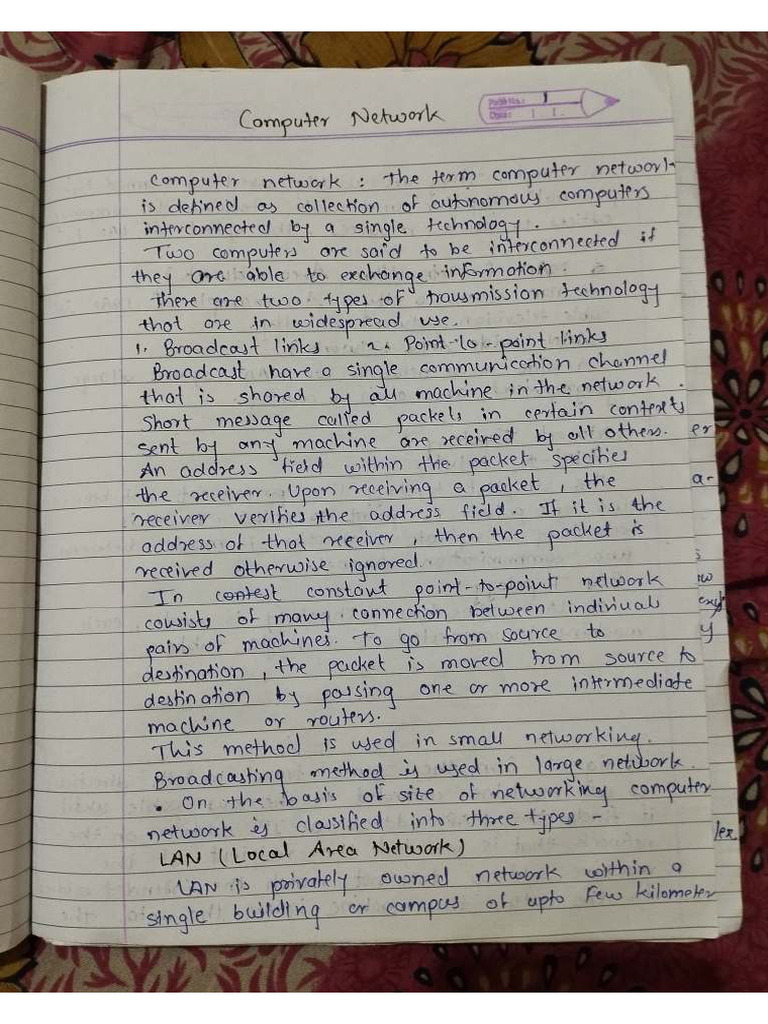 Computer Network
Page No.: 1
Date:
Computer network : The term computer network
is defined as collection of autonomous computers
interconnected by a single technology.
Two computers are said to be interconnected if
they are able to exchange information.
There are two types of transmission technology
that are in widespread use.
1. Broadcast links 2. Point-to-point links
Broadcast have a single communication channel
that is shared by all machine in the network.
Short message called packets in certain contexts
sent by any machine are received by all others.
An address field within the packet specifies
the receiver. Upon receiving a packet, the
receiver verifies the address field. If it is the
address of that receiver, then the packet is
received otherwise ignored.
In contest constant point-to-point network
consists of many connection between indiviual
pairs of machines. To go from source to
destination, the packet is moved from source to
destination by passing one or more intermediate
machine or routers.
This method is used in small networking.
Broadcasting method is used in large network.
• On the basis of size of networking computer
network is classified into three types -
LAN (Local Area Network)
LAN is privately owned network within a
single building or campus of upto few kilometer
er
a-
s
y